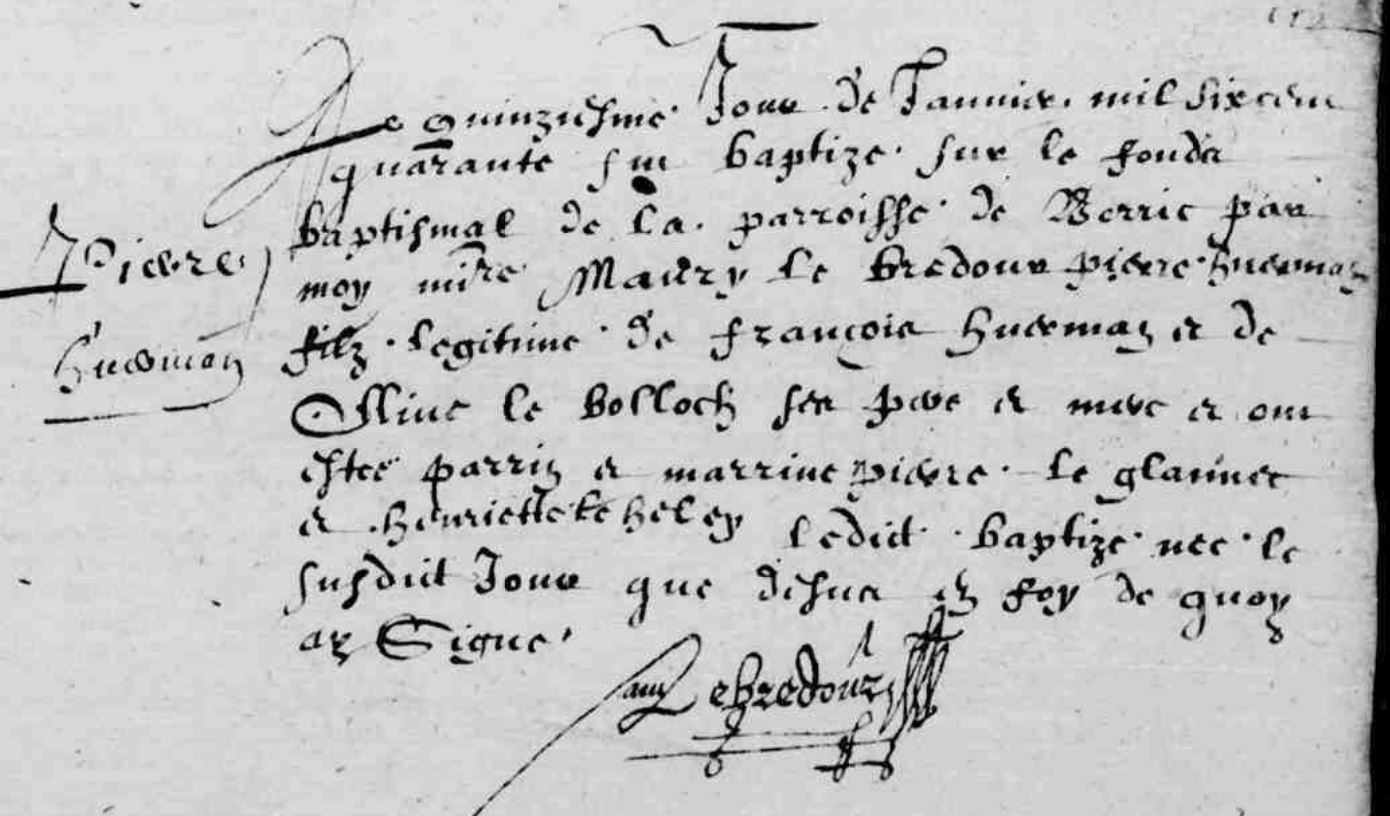 Le quinziesme Jour de Janvier mil six cent
quarante fut baptizé sur le fonds
baptismal de la parroisse de Berric par
Pierre
moy missire Maury le bredour pierre huerman
huerman
filz legitime de françois huerman et de
Ollive le bolloch ses pere et mere et ont
estes parrin et marrine pierre le glannec
et henriette le heley ledict baptizé nee le
susdict Jour que desus en foy de quoy
ay Signe
Lebredour